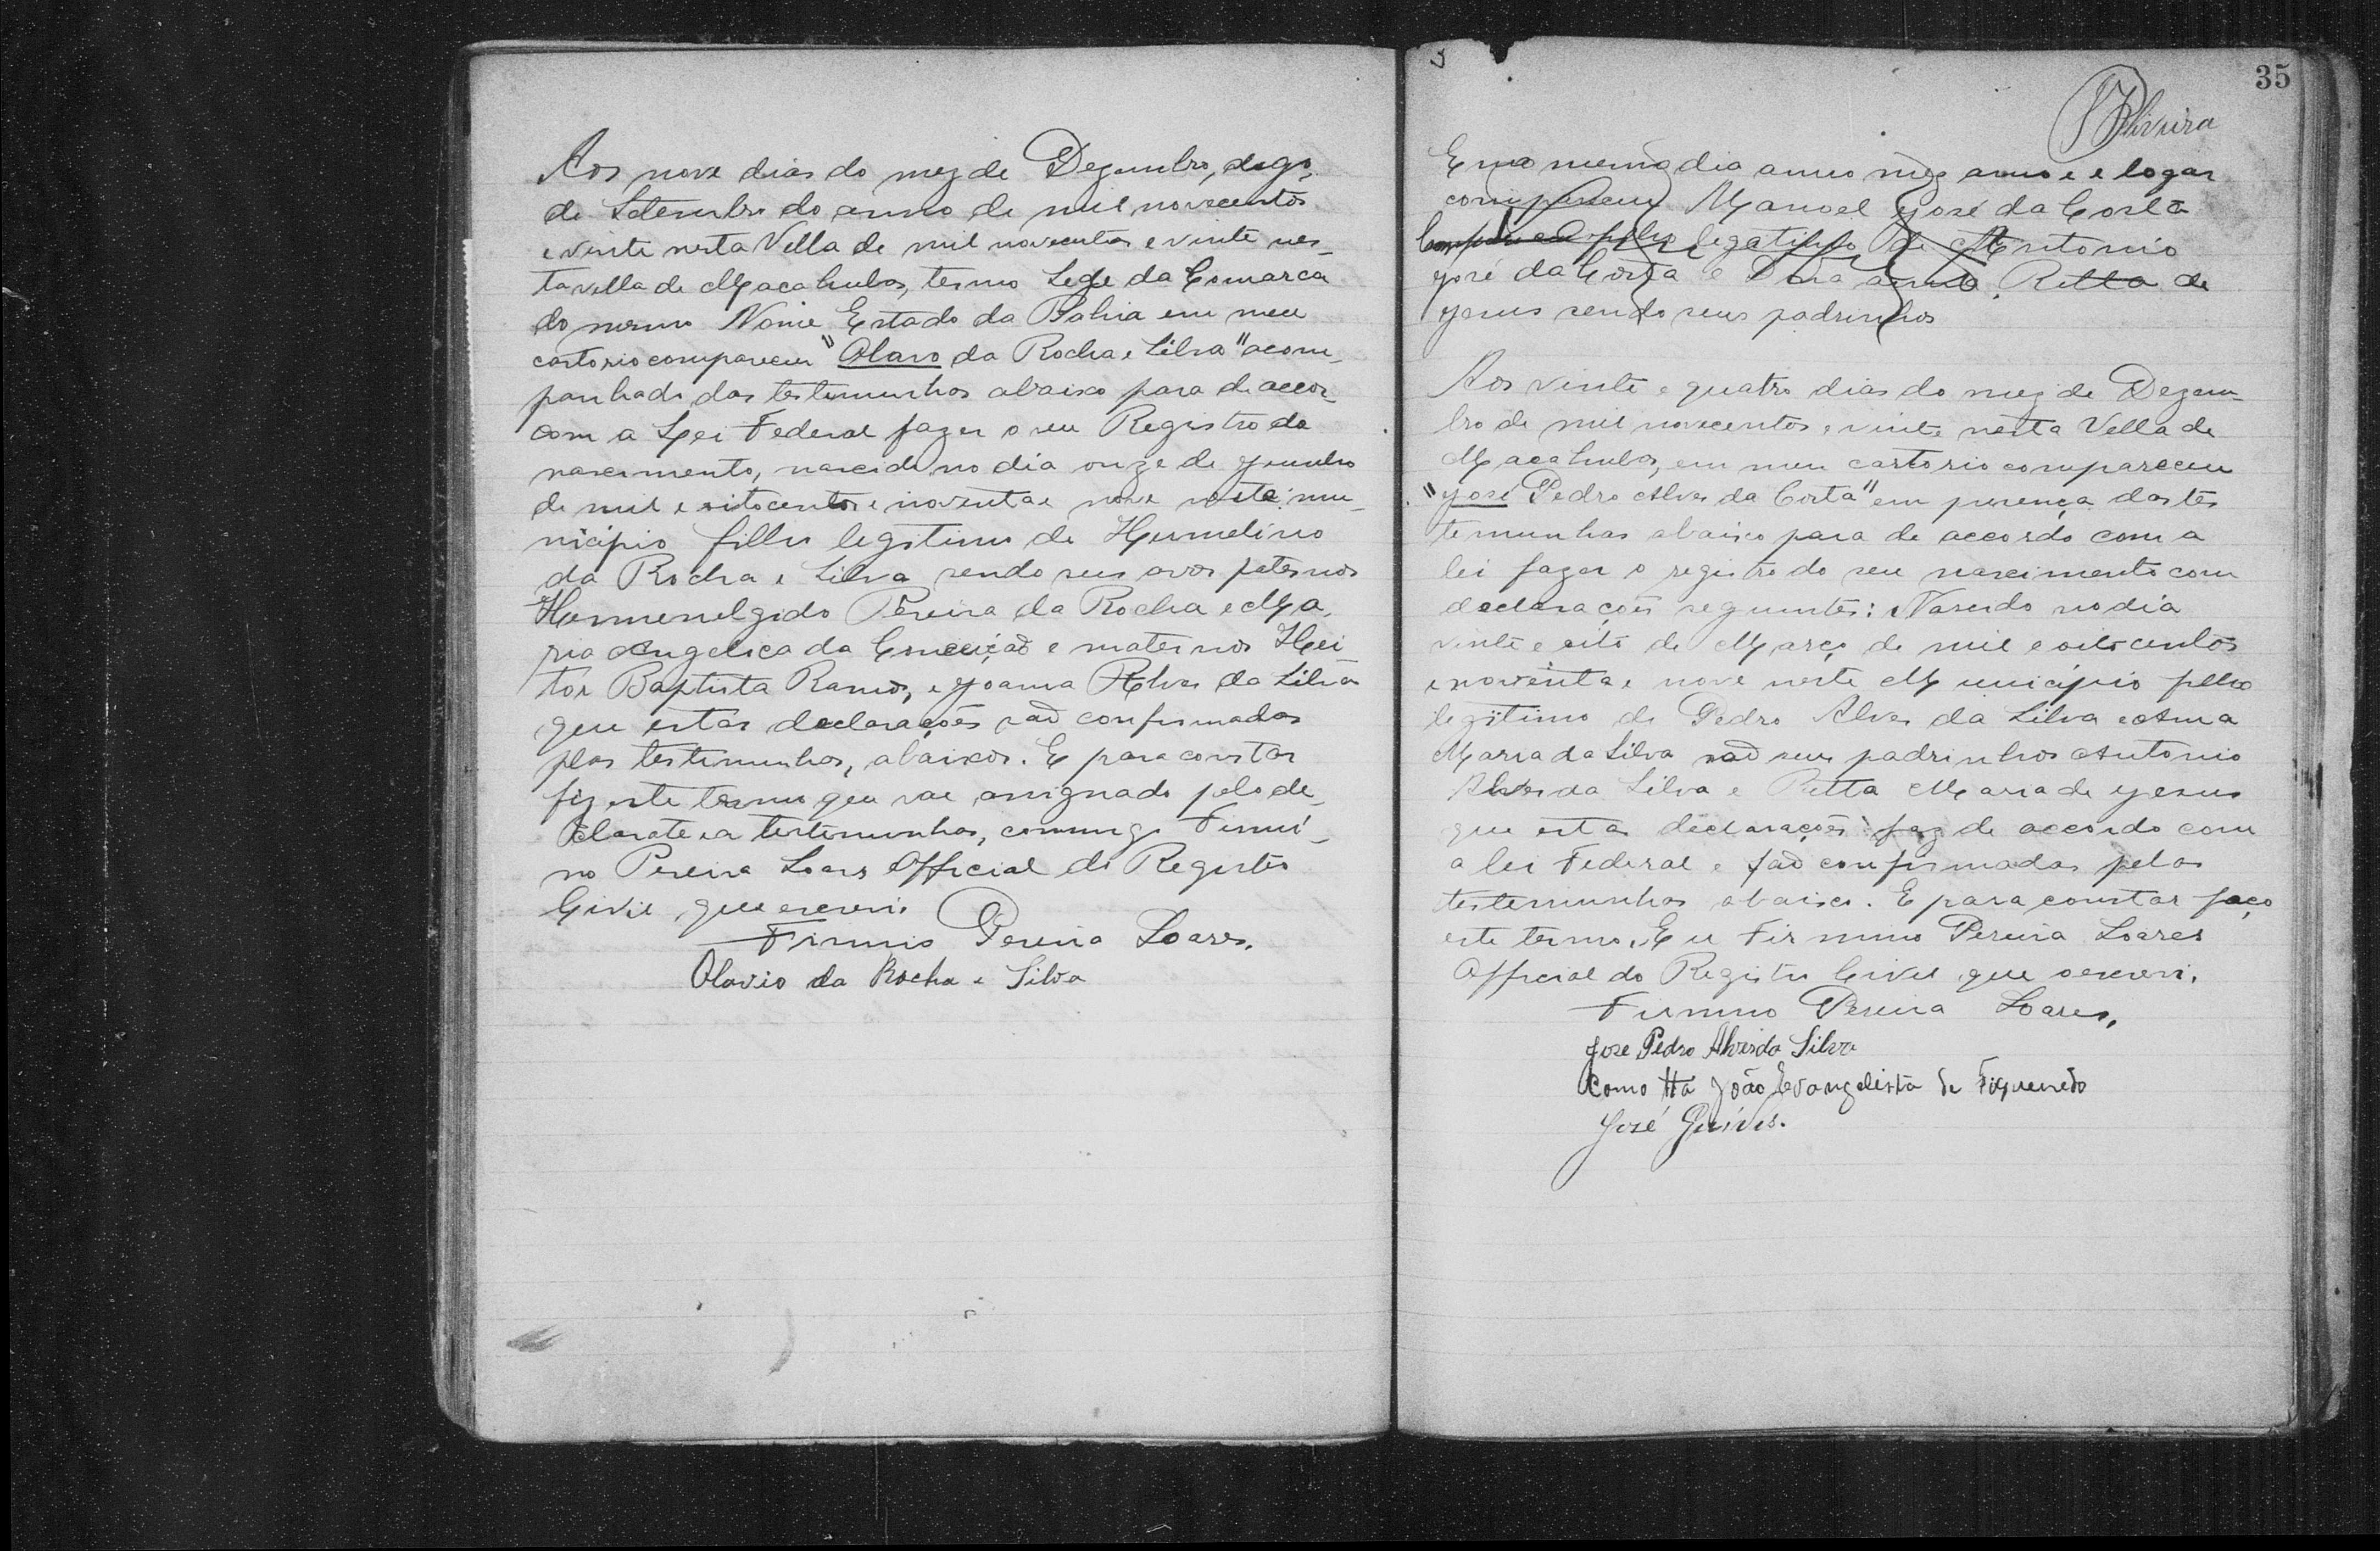 Aos nove dias do mez de Dezembro, digo,
de Setembro do anno de mil novecentos
e vinte nesta Villa de mil novecentos e vinte nes-
ta villa de Macahubas, termo Sede da Comarca
do mesmo Nome Estado da Bahia em meu
cartorio compareceu "Olavo da Rocha e Silva" acom-
panhado das testemunhas abaixo para de accor-
com a Lei Federal fazer o seu Registro de
nascimento, nascido no dia onze de Junho
de mil e oitocentos e noventa e nove neste mu-
nicipio filho legitimo de Hermelino
da Rocha e Silva sendo seus avos paternos
Hermenelgido Pereira da Rocha e Ma-
ria Angelica da Conceição e maternos Hei
tor Baptista Ramos, e Joanna Alves da Silva
que estas declarações são confirmadas
plas testemunhas, abaixos. E para constar
fiz este termo que vae assignado pelo de-
clarate e a testemunhas, commigo Firmi-
no Pereira Soares Official do Registro
Civil que escrevi.
Firmino Pereira Soares.
Olavio da Rocha e Silva
35
Oliveira
E no mesmo dia anno mez anno e e logar
compareceu Manoel José da Costa
Compareceu filho legatimo de Antonio
José da Costa e Dona Ritta de
Jesus sendo seus padrinhos
Aos vinte e quatro dias do mez de Dezem-
bro de mil novecentos e vinte nesta Villa de
Macahubas, em meu cartorio compareceu
"José Pedro Alves da Costa" em presença das tes
temunhas abaixo para de accordo com a
lei fazer o registro do seu nascimento com
declarações seguintes: Nascido no dia
vinte e oito de Março de mil e oitocentos
e noventa e nove neste Municipio filho
legitimo de Pedro Alves da Silva e Anna
Maria da Silva são seus padrinhos Antonio
Alves da Silva e Ritta Maria de Jesus
que estas declarações faz de accordo com
a lei Federal e são confirmadas pelas
testemunhas abaixo. E para constar faço
este termo. Eu Firmino Pereira Soares
Official do Registro Civil que o escrevi.
Firmino Pereira Soares.
Jose Pedro Alves da Silva
Como tta João Evangelista de Figueredo
José